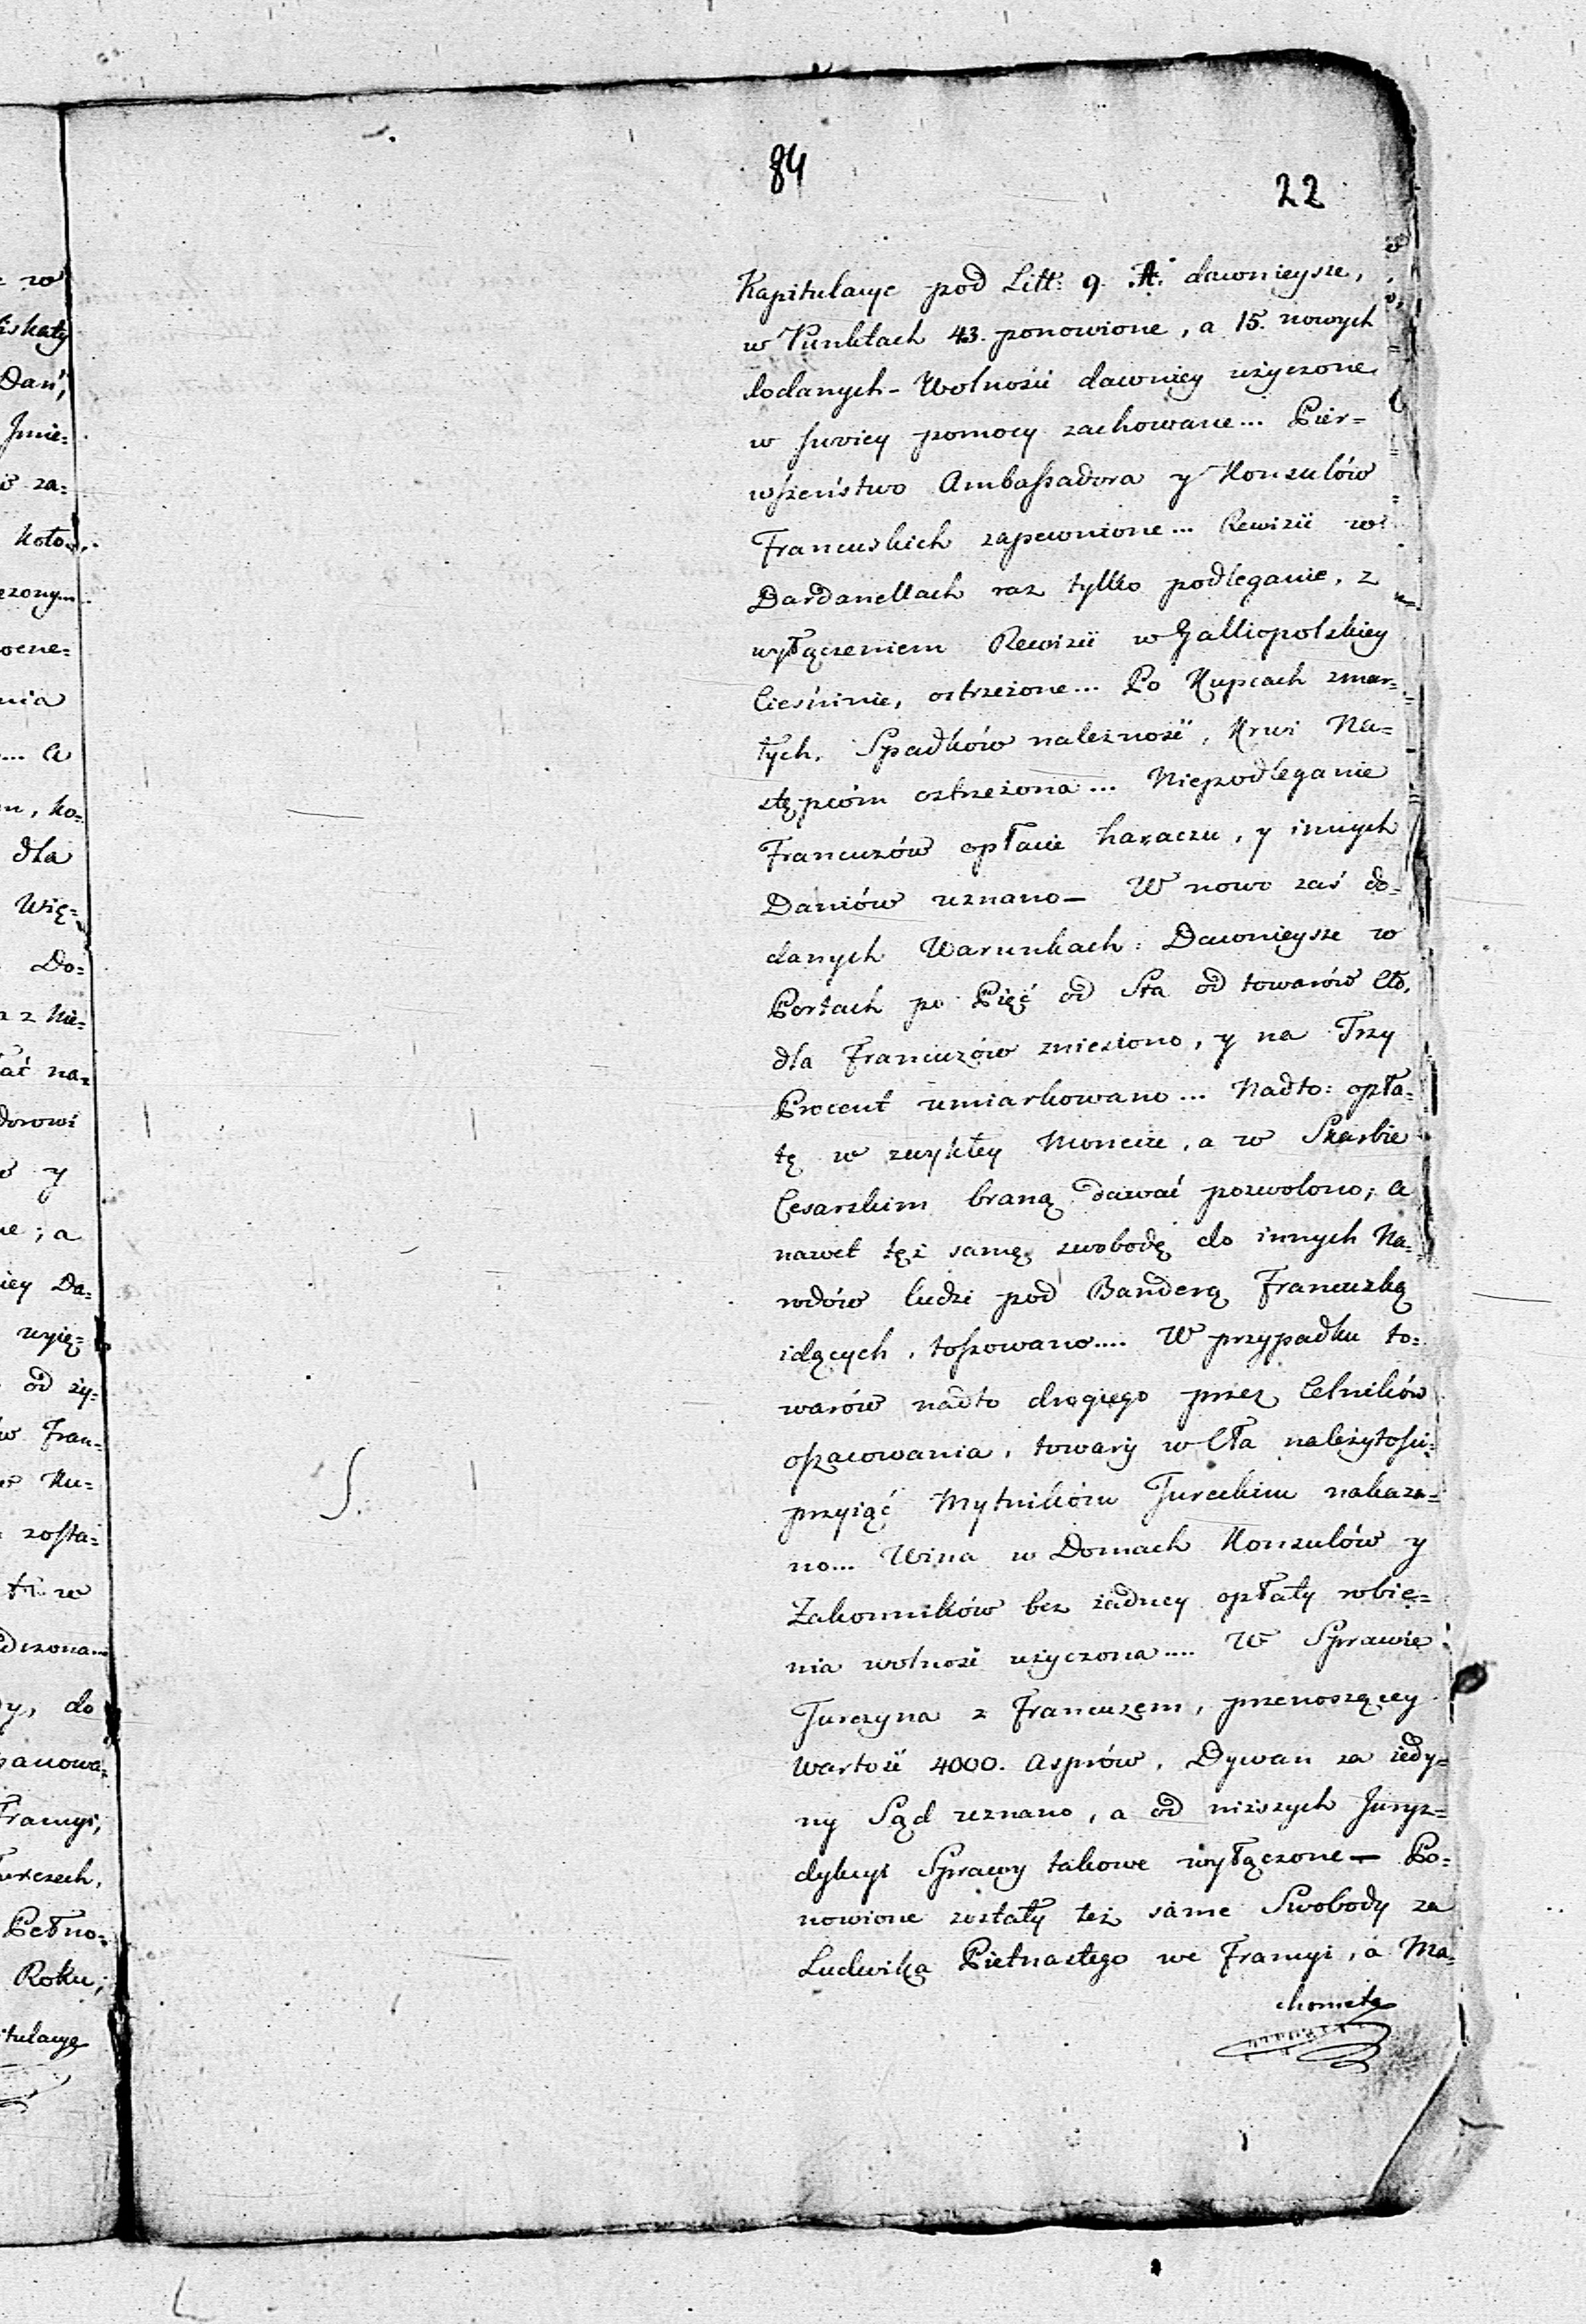 84
22
Kapitulacye pod Litt: 9. A. dawnieysze,
w Punktach 43. ponowione, a 15. nowych
dodanych - Wolności dawniey użyczone,
w swoiey pomocy zachowane... Pier=
wszeństwo Ambassadora y Konsulów
Francuskich zapewnione... Rewizii w
Dardanellach raz tylko podleganie, z
wyłączeniem Rewizii w Galliopolskiey
Cieśninie, ostrzeżone... Po Kupcach zmar=
łych, Spadków należność, Krwi Na=
stępcóm ostrzeżona... Niepodleganie
Francuzów opłacie haraczu, y innych
Daniów uznano — W nowo zaś do=
danych Warunkach: Dawnieysze w
Portach po Pięć od Sta od towarów Cło,
dla Francuzów zniesiono, y na Trzy
Procent umiarkowano... Nadto: opła=
tę w zwykłey Monecie, a w Skarbie
Cesarskim braną dawać pozwolono; a
nawet tęż samę swobodę do innych Na=
rodów ludzi pod Banderą Francuzką
idących, stosowano.... W przypadku to=
warów nadto drogiego przez Celników
oszacowania, towary w Cła należytości
przyiąć Mytnikóm Tureckim nakaza=
no... Wina w Domach Konsulów y
Zakonników bez żadney opłaty robie=
nia wolność użyczona.... W Sprawie
Turczyna z Francuzem, przenoszącey
wartość 4000. Asprów, Dywan za iedy=
ny Sąd uznano, a od niższych Juryz=
dykcyi Sprawy takowe wyłączone — Po=
nowione zostały też same Swobody za
Ludwika Pietnastego we Francyi, a Ma=
chometa